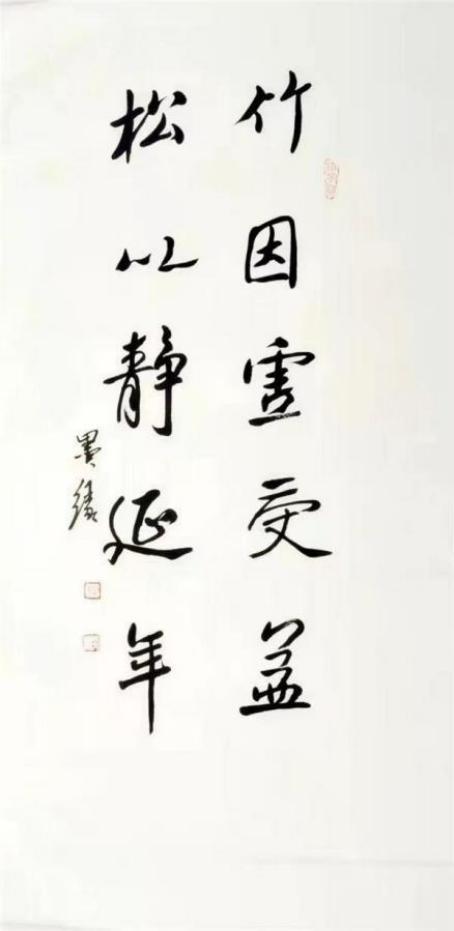 竹因虚受益
松以静延年
墨